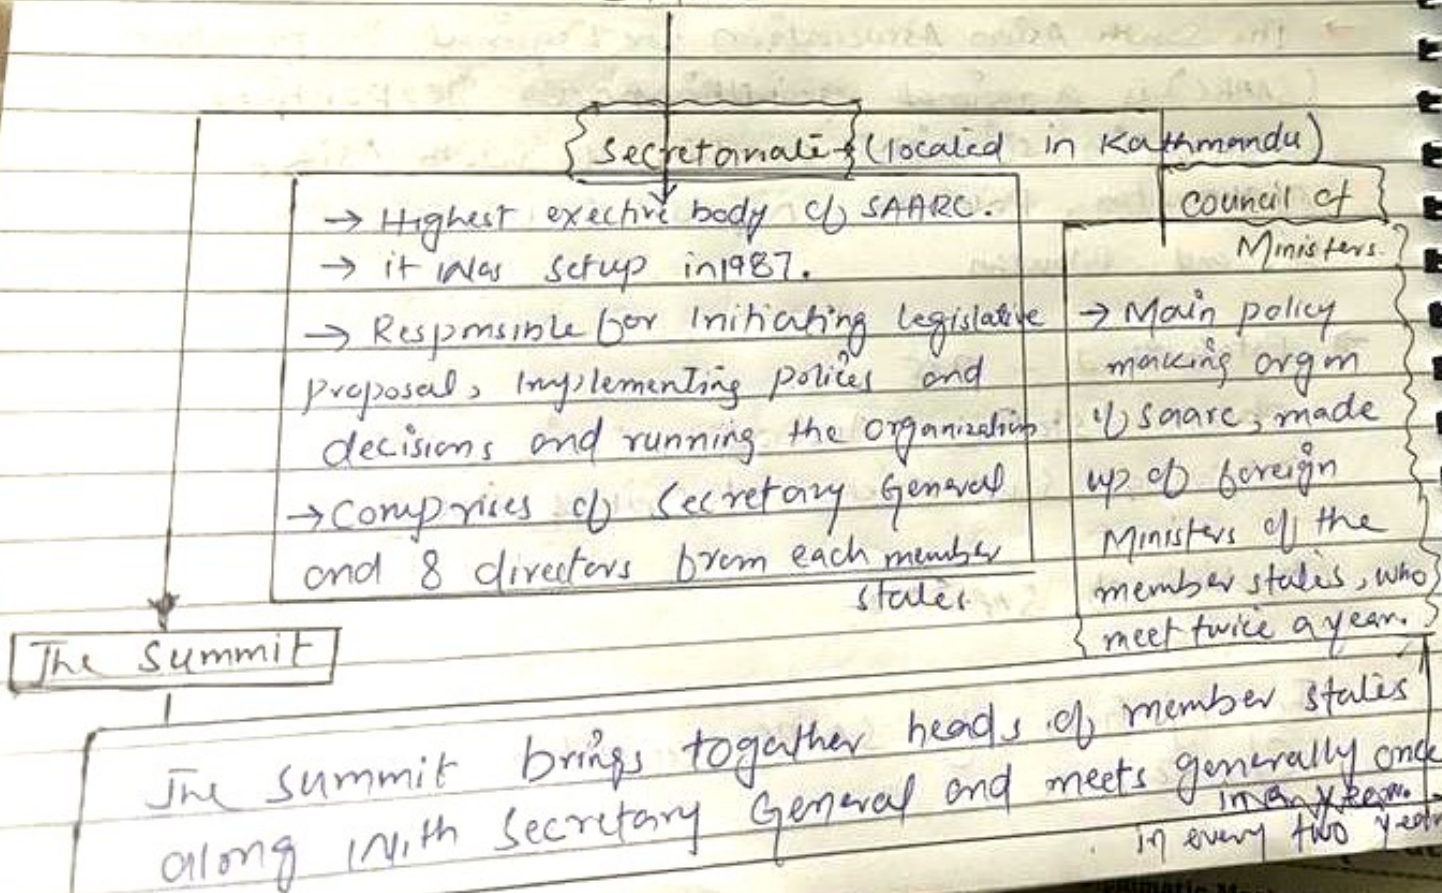 Secretariate (located in Kathmandu)
→ Highest exective body of SAARC.
→ it was setup in 1987.
→ Responsible for Initiating legislative
proposal, Implementing polices and
decisions and running the organization
→ Comprises of Secretary General
and 8 directors from each member
states.
council of
Ministers.
→ Main policy
making organ
of saarc, made
up of foreign
Ministers of the
member states, who
meet twice a year.
The Summit
The summit brings togather heads of member states
along with Secretary General and meets generally once
in every two year